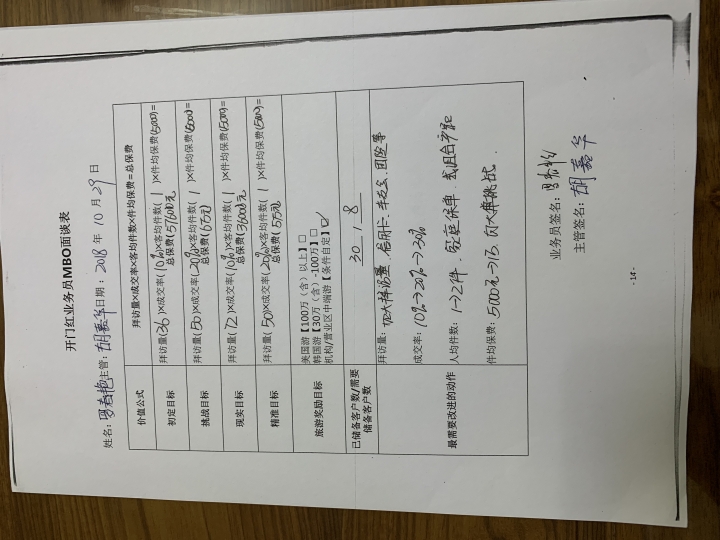 开门红业务员MBO面谈表
姓名： 主管：胡嘉华 日期：2018 年 10 月 29 日
价值公式 拜访量×成交率×客均件数×件均保费=总保费
初定目标 拜访量(36)×成交率(10%)×客均件数(1)×件均保费( )=
总保费(57600)元
挑战目标 拜访量(50)×成交率(20%)×客均件数(1)×件均保费( )=
总保费( )
现实目标 拜访量(72)×成交率(10%)×客均件数(1)×件均保费(5000)=
总保费(36000)元
精准目标 拜访量(50)×成交率(20%)×客均件数(1)×件均保费( )=
总保费( )
旅游奖励目标
美国游【100万（含）以上】□
韩国游【30万（含）-100万】□
机构/营业区中端游【条件自定】☑
已储备客户数/需要
储备客户数
30 / 8
最需要改进的动作
拜访量：加大拜访量、信用卡、 、团险等
成交率：10%→20%→30%
人均件数：1→2件、 保单、
件均保费：5000元→
业务员签名：
主管签名：胡嘉华
- 14 -